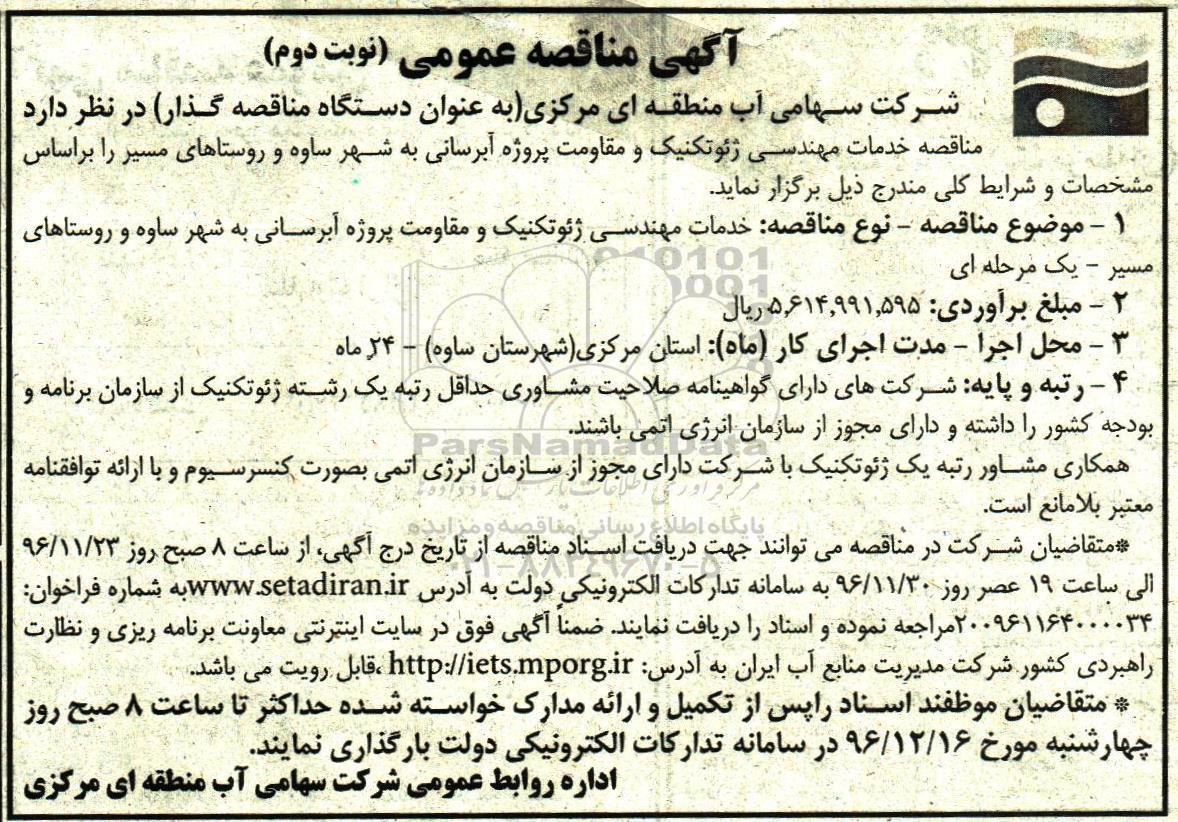 آگهی مناقصه عمومی (نوبت دوم)
شرکت سهامی آب منطقه ای مرکزی(به عنوان دستگاه مناقصه گذار) در نظر دارد
مناقصه خدمات مهندسی ژئوتکنیک و مقاومت پروژه آبرسانی به شهر ساوه و روستاهای مسیر را براساس
مشخصات و شرایط کلی مندرج ذیل برگزار نماید.
۱ - موضوع مناقصه - نوع مناقصه: خدمات مهندسی ژئوتکنیک و مقاومت پروژه آبرسانی به شهر ساوه و روستاهای
مسیر - یک مرحله ای
۲ - مبلغ برآوردی: ۵,۶۱۴,۹۹۱,۵۹۵ ریال
۳ - محل اجرا - مدت اجرای کار (ماه): استان مرکزی(شهرستان ساوه) - ۲۴ ماه
۴ - رتبه و پایه: شرکت های دارای گواهینامه صلاحیت مشاوری حداقل رتبه یک رشته ژئوتکنیک از سازمان برنامه و
بودجه کشور را داشته و دارای مجوز از سازمان انرژی اتمی باشند.
همکاری مشاور رتبه یک ژئوتکنیک با شرکت دارای مجوز از سازمان انرژی اتمی بصورت کنسرسیوم و با ارائه توافقنامه
معتبر بلامانع است.
*متقاضیان شرکت در مناقصه می توانند جهت دریافت اسناد مناقصه از تاریخ درج آگهی، از ساعت ۸ صبح روز ۹۶/۱۱/۲۳
الی ساعت ۱۹ عصر روز ۹۶/۱۱/۳۰ به سامانه تدارکات الکترونیکی دولت به آدرس www.setadiran.ir به شماره فراخوان:
۲۰۰۹۶۱۱۶۴۰۰۰۰۳۴ مراجعه نموده و اسناد را دریافت نمایند. ضمناً آگهی فوق در سایت اینترنتی معاونت برنامه ریزی و نظارت
راهبردی کشور شرکت مدیریت منابع آب ایران به آدرس: http://iets.mporg.ir ،قابل رویت می باشد.
* متقاضیان موظفند اسناد را پس از تکمیل و ارائه مدارک خواسته شده حداکثر تا ساعت ۸ صبح روز
چهارشنبه مورخ ۹۶/۱۲/۱۶ در سامانه تدارکات الکترونیکی دولت بارگذاری نمایند.
اداره روابط عمومی شرکت سهامی آب منطقه ای مرکزی
ParsNamadData
پایگاه اطلاع رسانی مناقصه و مزایده
۰۲۱-۸۸۳۴۹۶۷۰-۵